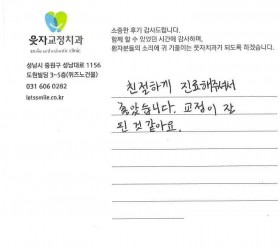 웃자교정치과
성남시 중원구 성남대로 1156
도원빌딩 3~5층(위즈노건물)
031 606 0282
letssmile.co.kr
소중한 후기 감사드립니다.
함께 할 수 있었던 시간에 감사하며,
환자분들의 소리에 귀 기울이는 웃자치과가 되도록 하겠습니다.
친절하게 진료해주셔서
좋았습니다. 교정이 잘
된 것 같아요.